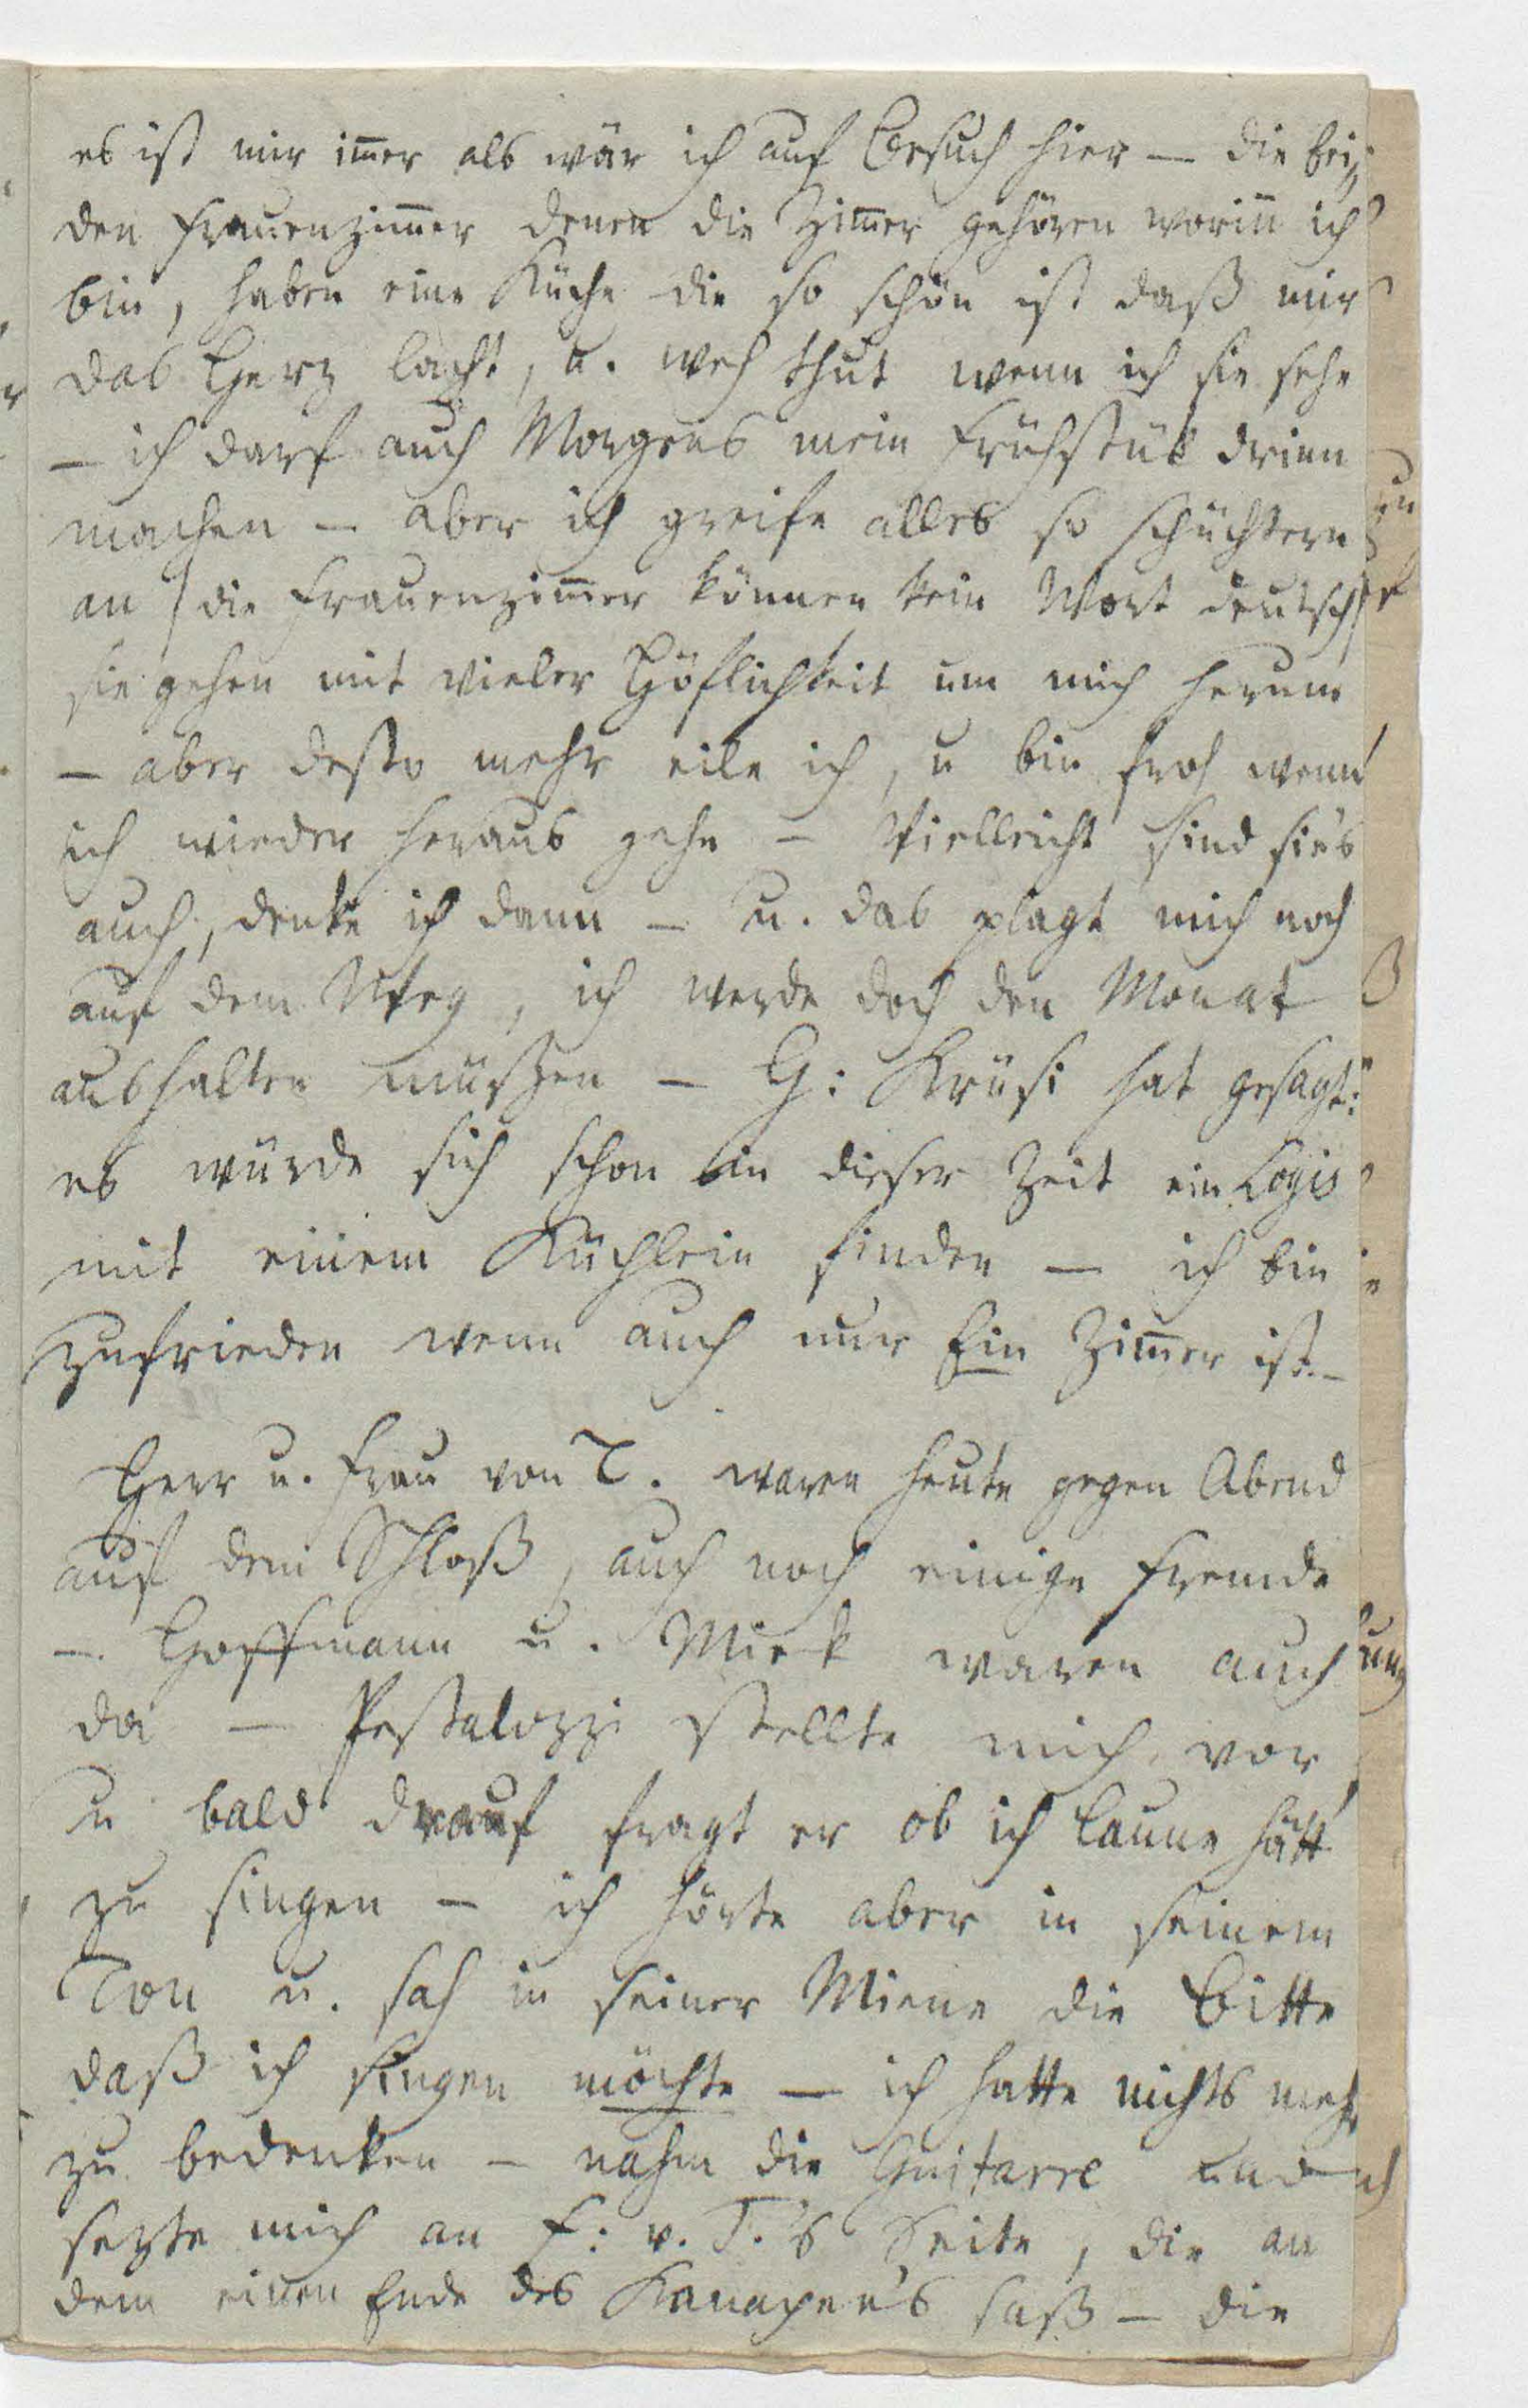 es ist mir im̄er als wär ich auf Besuch hier — die bei-
den Frauenzim̄er denen die Zim̄er gehören worin̄ ich
bin, haben eine Küche die so schön ist daß mir
das Herz lacht, u. weh thut wenn ich sie sehe
— ich darf auch Morgens mein Frühstük drinn
machen — aber ich greife alles so schüchtern
an / die Frauenzim̄er können kein Wort deutsch /
sie gehen mit vieler Höflichkeit um mich herum
— aber desto mehr eile ich, u bin froh wenn
ich wieder heraus gehe — Vielleicht sind sie's
auch, denke ich dann — u. das plagt mich noch
auf dem Weg, ich werde doch den Monat
aushalten müßen — H: Krüsi hat gesagt:
es würde sich schon in dieser Zeit ein Logis
mit einem Küchlein finden — ich bin
zufrieden wenn auch nur Ein Zim̄er ist. —
Herr u. Frau von T. waren heute gegen Abend
auf dem Schloß, auch noch einige Fremde
— Hoffmann u. Miek waren auch
da — Pestalozzi stellte mich vor
u bald drauf fragt er ob ich Laune hätt
zu singen — ich hörte aber in seinem
Ton u. sah in seiner Miene die Bitte
daß ich singen möchte — ich hatte nichts mehr
zu bedenken — nahm die Guitarre und
sezte mich an F: v. T.'s Seite, die an
dem einen Ende des Kanapee's saß — die